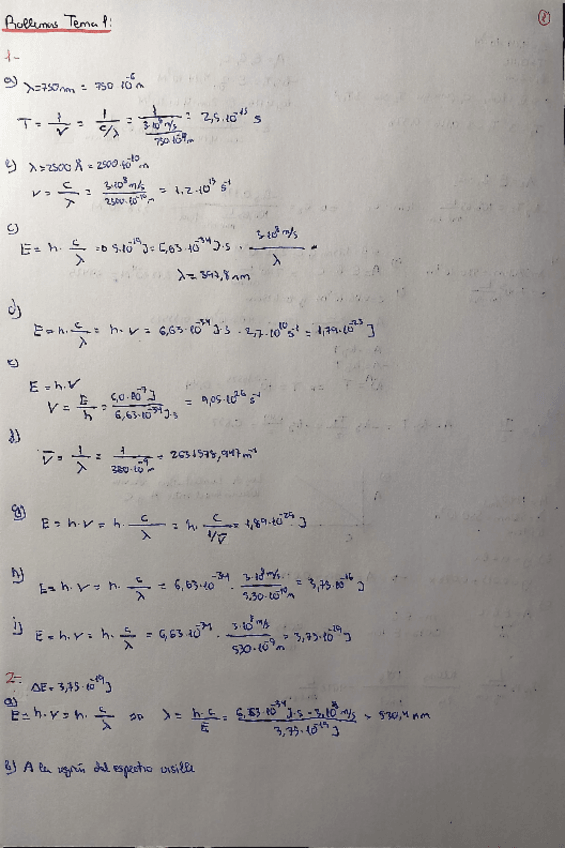 Problemas Tema 1:
1-
a) λ=750nm = 750·10⁻⁶m
T = 1/ν = 1/(c/λ) = 1/(3·10⁸m/s / 750·10⁻⁹m) = 2,5·10⁻¹⁵ s
b) λ=2500 Å = 2500·10⁻¹⁰m
ν = c/λ = 3·10⁸m/s / 2500·10⁻¹⁰m = 1,2·10¹⁵ s⁻¹
c)
E = h · c/λ = 5·10⁻¹⁹J = 6,63·10⁻³⁴J·s · 3·10⁸m/s / λ =
λ = 397,8nm
d)
E = h·c/λ = h·ν = 6,63·10⁻³⁴J·s · 2,7·10¹⁰s⁻¹ = 1,79·10⁻²³J
e)
E = h·ν
ν = E/h = 6,0·10⁻⁷J / 6,63·10⁻³⁴J·s = 9,05·10²⁶ s⁻¹
f)
ν̅ = 1/λ = 1/380·10⁻⁹m = 2631578,947m⁻¹
g) E = h·ν = h · c/λ = h · c/(1/ν̅) = 1,89·10⁻²⁸ J
h) E = h·ν = h · c/λ = 6,63·10⁻³⁴ · 3·10⁸m/s / 5,30·10⁻¹⁰m = 3,75·10⁻¹⁶ J
i) E = h·ν = h · c/λ = 6,63·10⁻³⁴ · 3·10⁸m/s / 530·10⁻⁹m = 3,75·10⁻¹⁹ J
2- ΔE = 3,75·10⁻¹⁹J
a) E = h·ν = h · c/λ λ = h·c/E = 6,63·10⁻³⁴J·s · 3·10⁸m/s / 3,75·10⁻¹⁹J = 530,4 nm
b) A la región del espectro visible